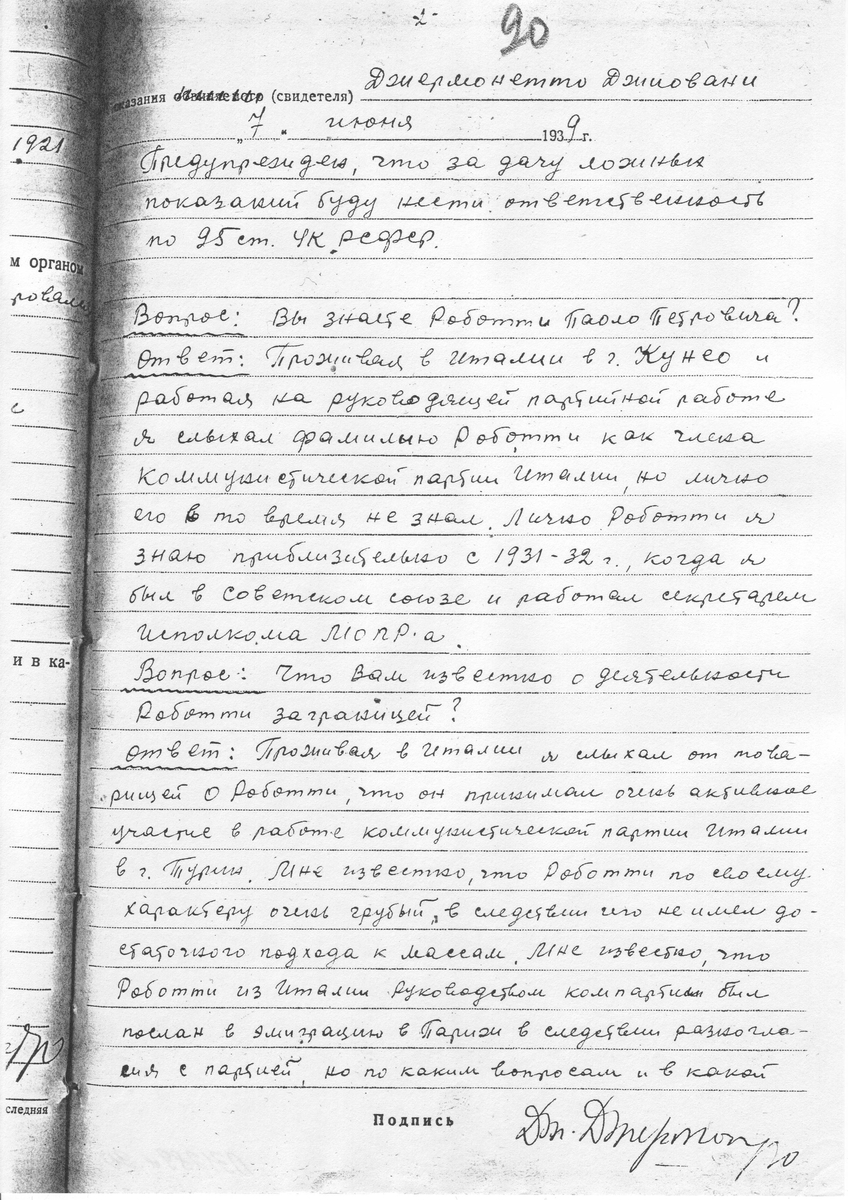 2
90
оказания (свидетеля) Джермонетто Джиовани
„7“ июня 1939 г.
Предупрежден, что за дачу ложных
показаний буду нести ответственность
по 95 ст. УК РСФСР.
Вопрос: Вы знаете Роботти Паоло Петровича?
Ответ: Проживая в Италии в г. Кунео и
работая на руководящей партийной работе
я слыхал фамилью Роботти как члена
Коммунистической партии Италии, но лично
его в то время не знал. Лично Роботти я
знаю приблизительно с 1931-32 г., когда я
был в Советском союзе и работал секретарем
Исполкома МОПР-а.
Вопрос: Что Вам известно о деятельности
Роботти заграницей?
Ответ: Проживая в Италии я слыхал от това-
рищей о Роботти, что он принимал очень активное
участие в работе коммунистической партии Италии
в г. Турин. Мне известно, что Роботти по своему
характеру очень грубый, в следствии чего не имел до-
статочного подхода к массам. Мне известно, что
Роботти из Италии руководством компартии был
послан в эмиграцию в Париж в следствии разногла-
сия с партией, но по каким вопросам и в какой
Подпись Дж. Джермонетто
1921
м органом
ровали
с
и в ка-
следняя